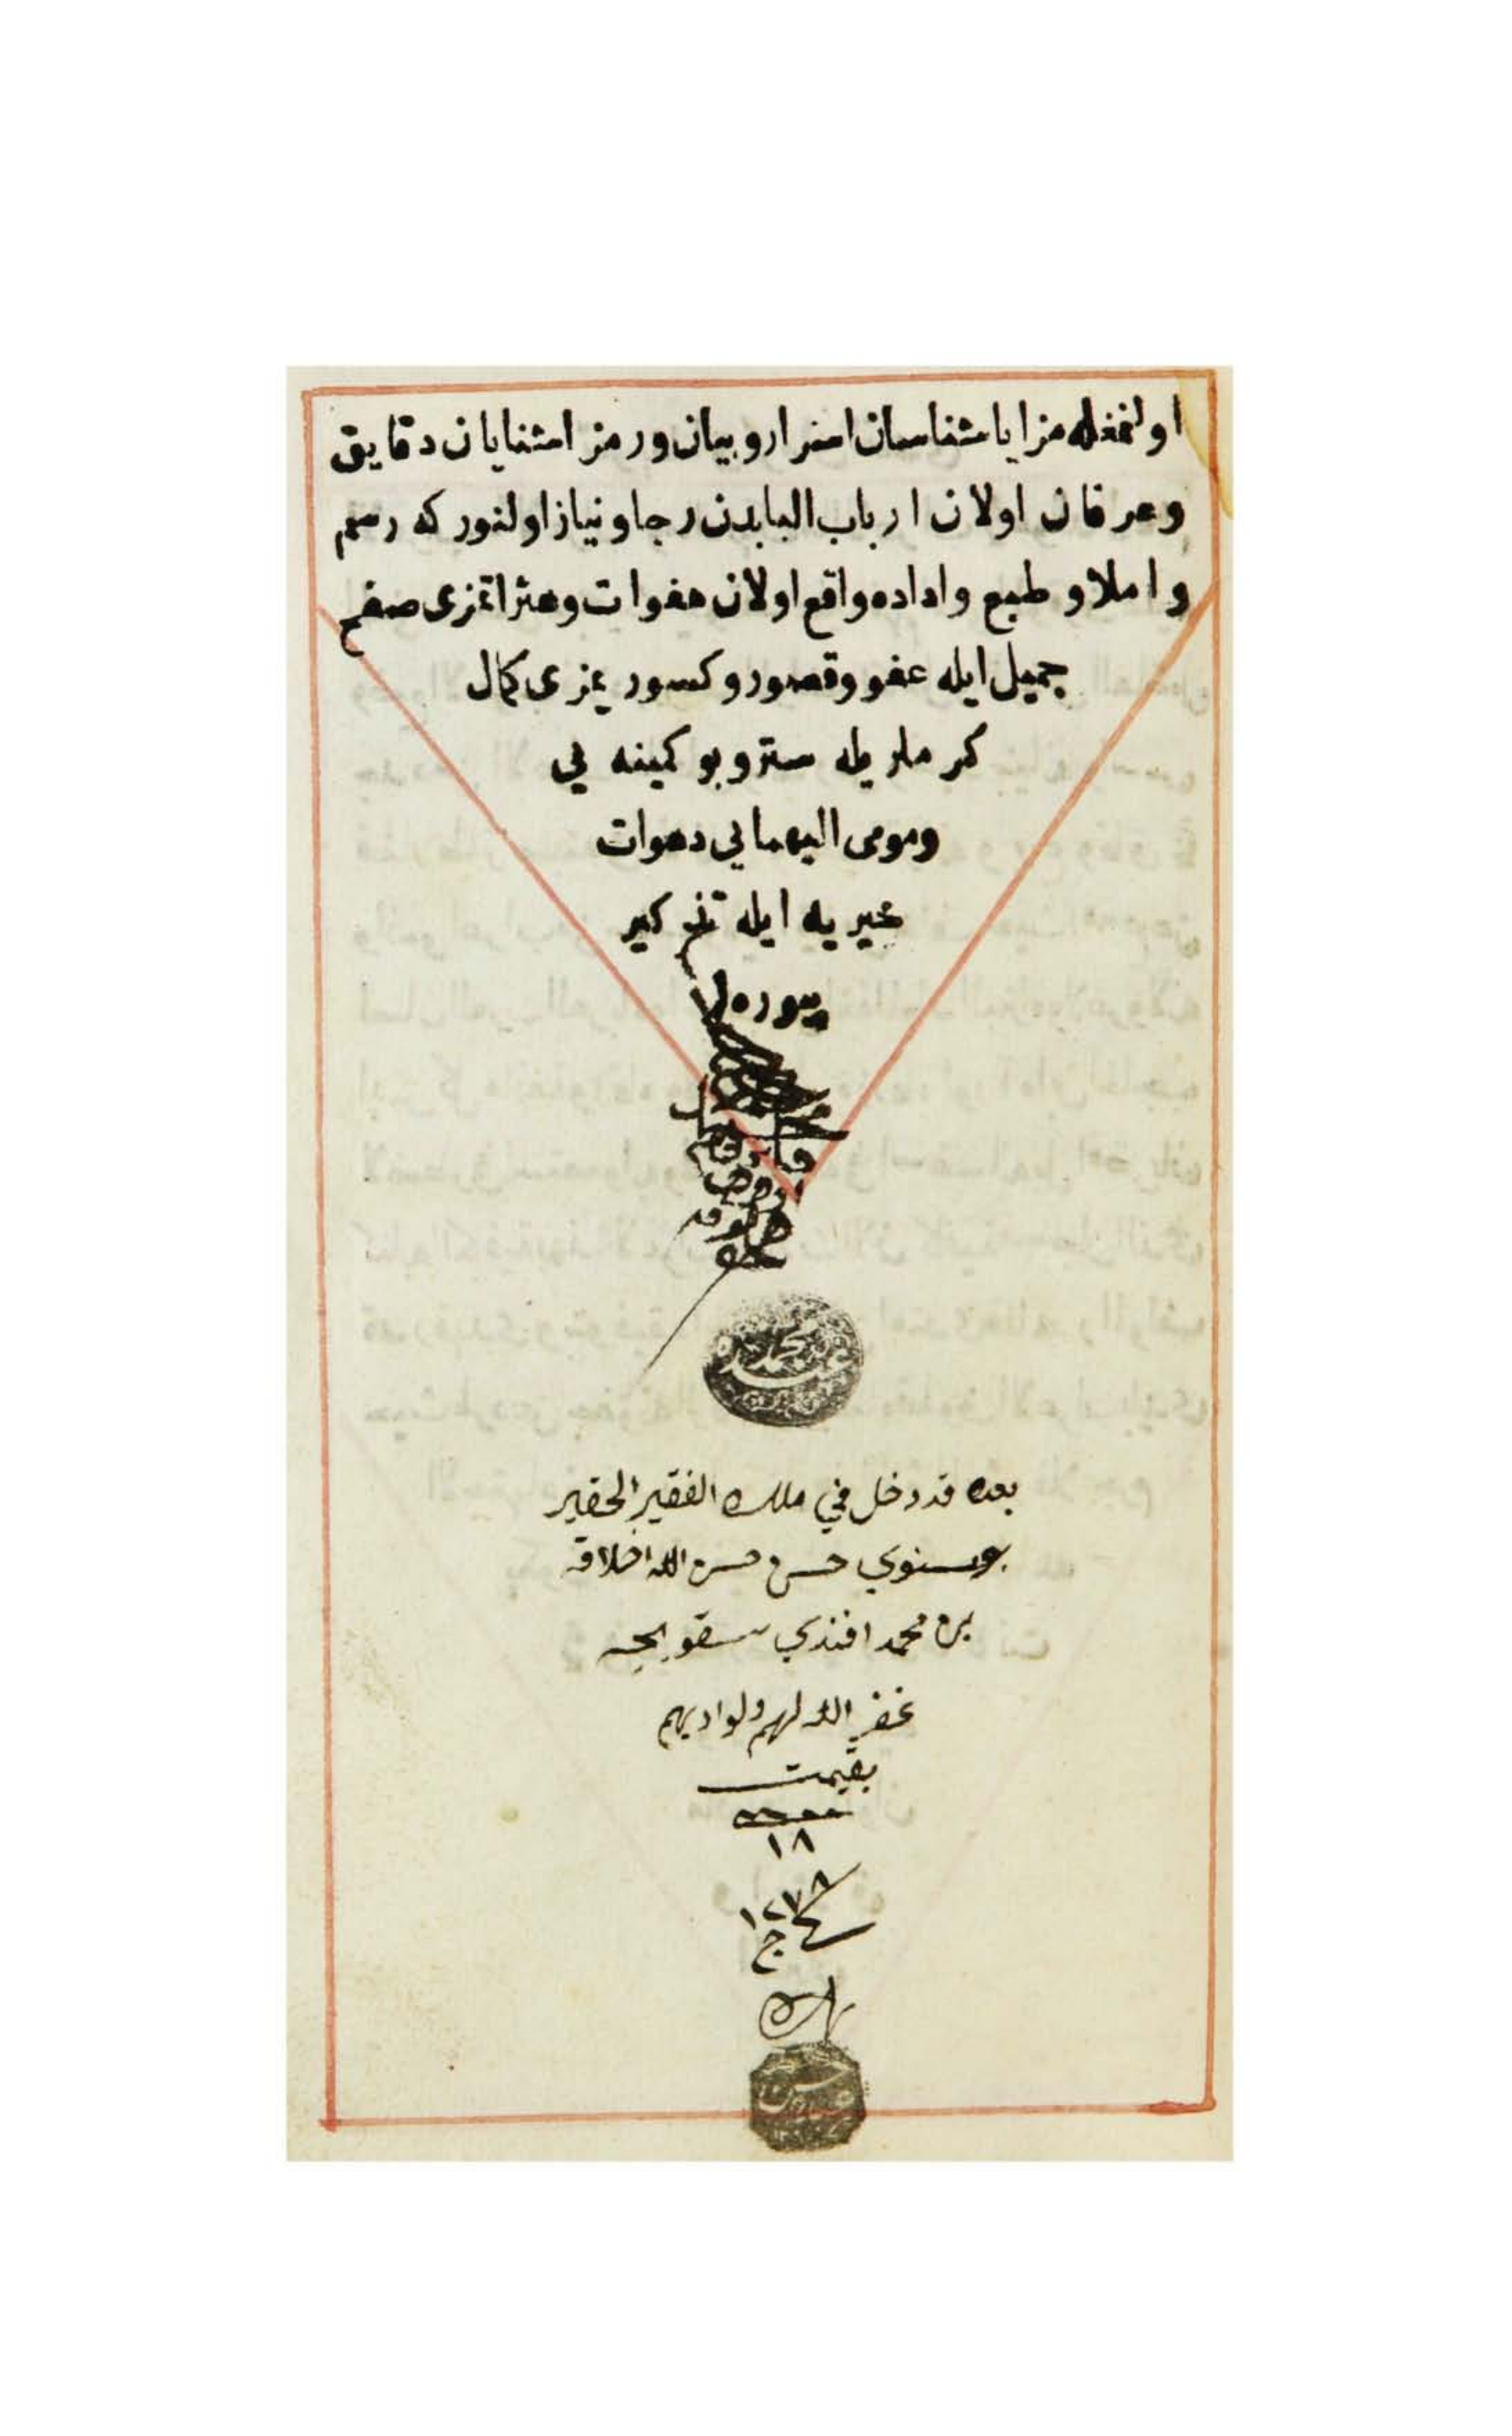 اولنمغله مزايا شناسان اسرار و بيان و رمز اشنايان دقايق
و عرفان اولان ارباب البابدن رجا و نياز اولنور كه رسم
و املا و طبع و اداده واقع اولان هفوات و عثراتمزى صفح
جميل ايله عفو و قصور و كسوريمزى كمال
كرملريله ستر و بو كمينه يى
و مومى اليهمايى دعوات
خيريه ايله تذكير
بيوره لر
محمد
عبده
بعده قد دخل في ملك الفقير الحقير
بوسنوي حسن حسن الله اخلاقه
بن محمد افندي سقويجه
غفر الله لهم ولواديهم
بقيمت
١٨
١٢٧٨
ج
حسن